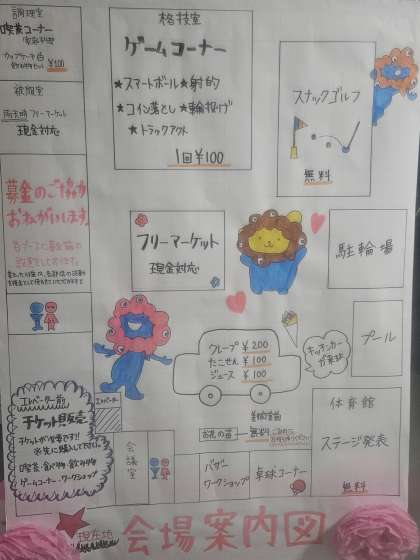 調理室
喫茶コーナー
¥100
被服室
雨天時 フリーマーケット
現金対応
募金のご協力
おねがいします。
格技室
ゲームコーナー
★スマートボール★射的
★コイン落とし★輪投げ
★トラックアウト
1回¥100
スナックゴルフ
無料
フリーマーケット
現金対応
駐輪場
クレープ ¥200
たこせん ¥100
ジュース ¥100
キッチンカー
が来ます
プール
エレベーター前
チケット販売
チケットが必要です!!
※先に購入して下さい。
喫茶・食べ物・飲み物
ゲームコーナー・ワークショップ
エレベーター
会議室
お花の苗
無料
バザー
ワークショップ
卓球コーナー
体育館
ステージ発表
無料
現在地
会場案内図